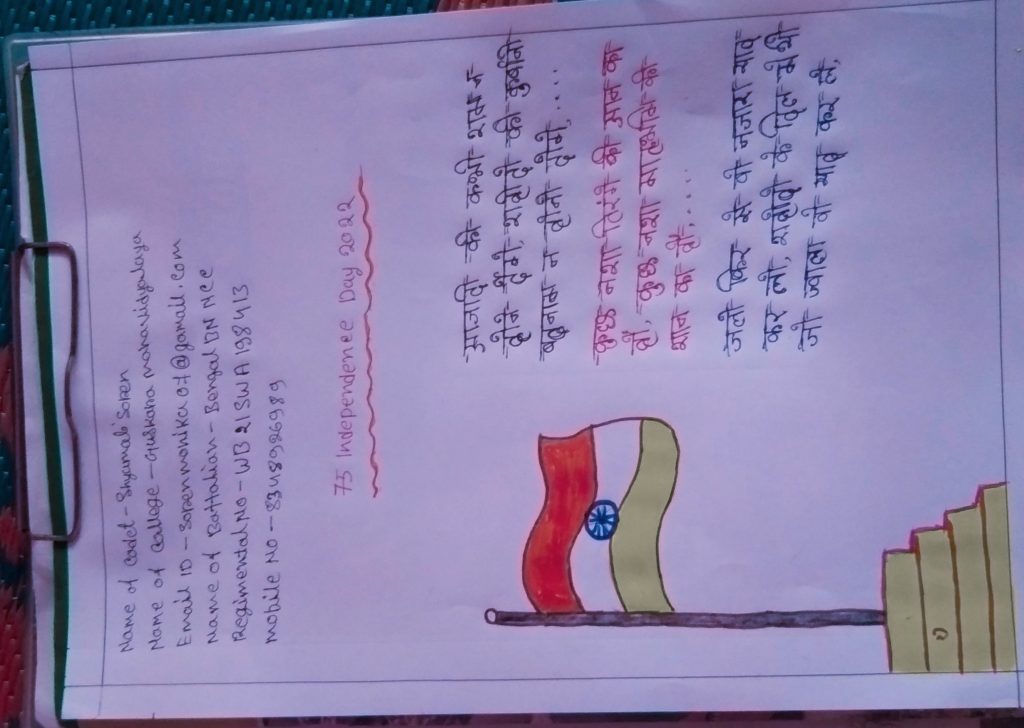 Name of Cadet - Shyamali Soren
Name of College - Guskara mahavidyalaya
Email ID - sorenmonika07@gamail.com
Name of Battalian - Bengal BN NCC
Regimental No - WB 21 SWA 198413
mobile No - 8348926989
75 Independence Day 2022
आजादि की कभी शाम न
होने देंगे, शहीदों की कुर्बानी
बदनाम न होनी देंगे,....
कुछ नशा तिरंगे की आन का
हैं, कुछ नशा मातृभूमि की
शान का है.....
चलो फिर से वो नजारा याद
कर लो, शहीदों के दिल में थी
जो ज्वाला वो याद कर ले,